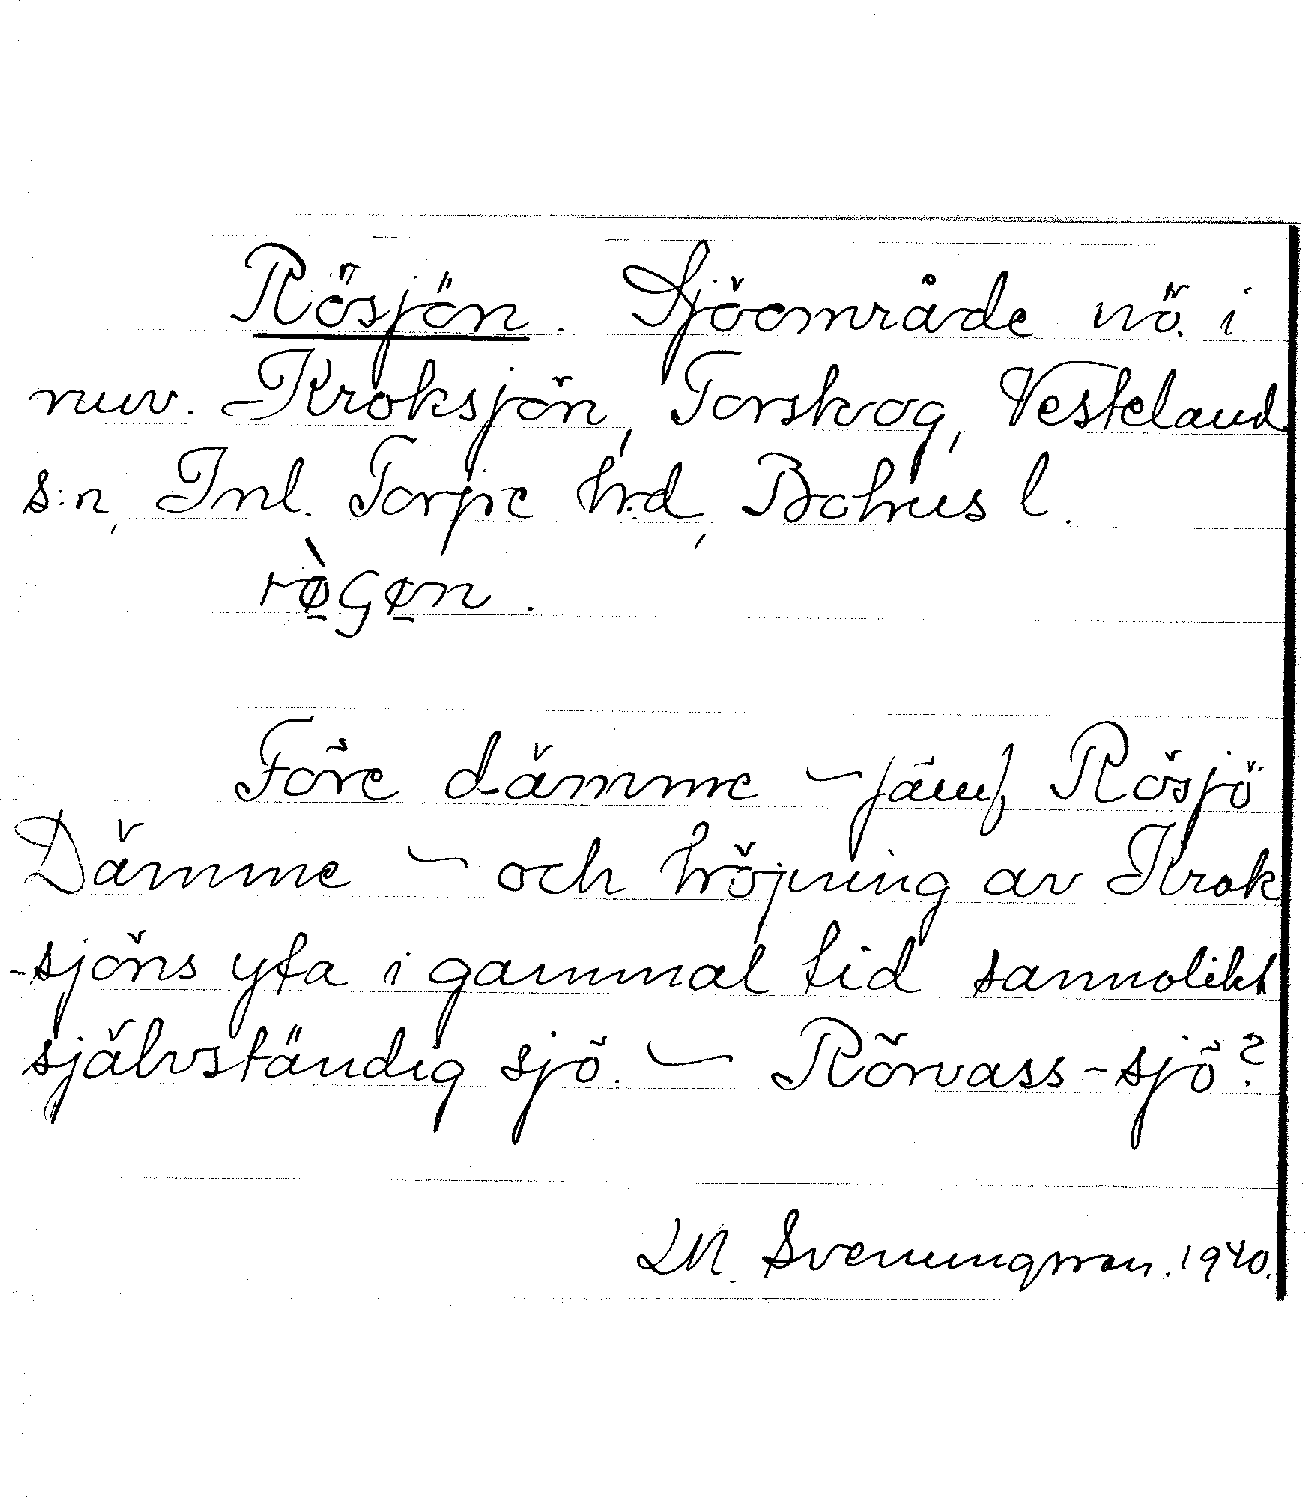 Rösjön. Sjöområde nö. i
nuv. Kroksjön, Torskog, Vesteland
s:n, Inl. Torpe h:d, Bohus l.
rø̀gøn.
Före dämme – jämf. Rösjö
Dämme – och höjning av Krok
-sjöns yta i gammal tid sannolikt
självständig sjö. – Rörvass-sjö?
Svenungsson. 1940.